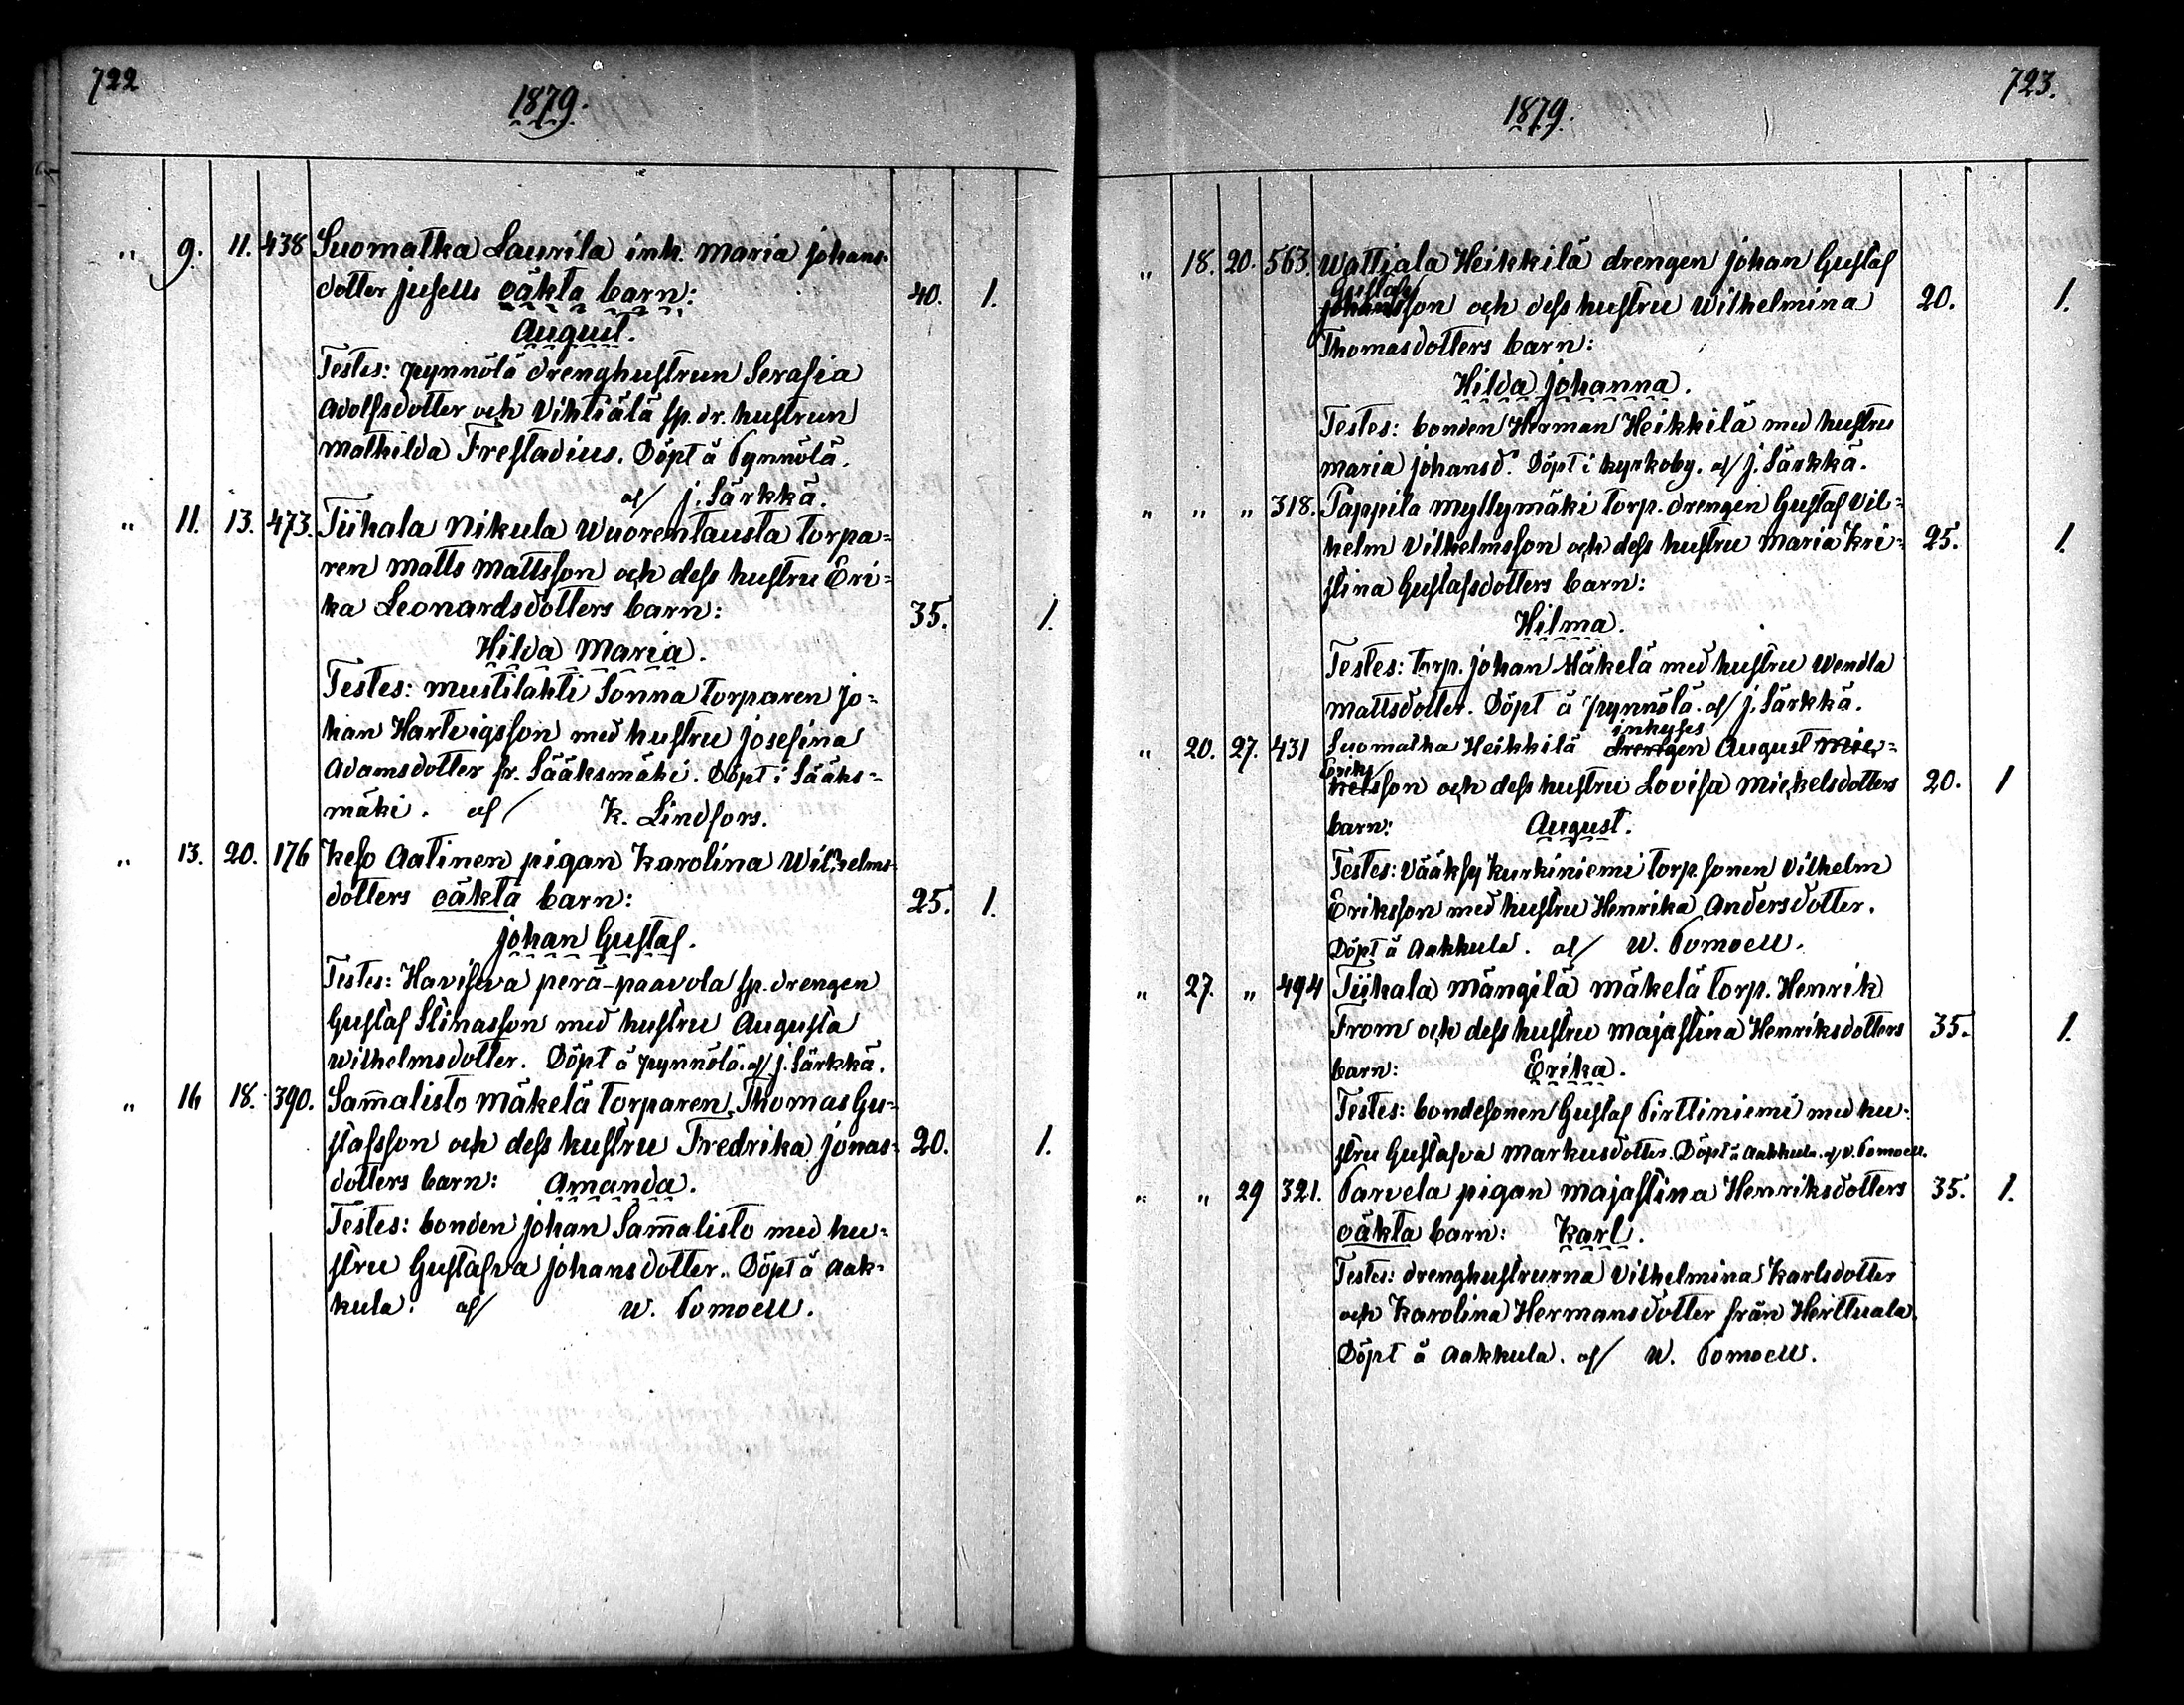 722
1879.
„ 9. 11. 438 Suomatka Laurila inh. Maria Johans-
dotter Jusells oäkta barn: 40. 1.
August.
Testes: Pynnölä drenghustrun Serafia
Adolfsdotter och Vihtiälä sp. dr. hustrun
Mathilda Frestadius. Döpt å Pynnölä.
af/ J. Särkkä.
„ 11. 13. 473. Tiihala Nikula Wuorentausta torpa=
ren Matts Mattsson och dess hustru Eri=
ka Leonardsdotters barn: 35. 1.
Hilda Maria.
Testes: Mustilahti Sonna torparen Jo=
han Hartvigsson med hustru Josefina
Adamsdotter fr. Sääksmäki. Döpt i Sääks=
mäki. af/ K. Lindfors.
„ 13. 20. 176 Keso Aatinen pigan Karolina Wilhelms-
dotters oäkta barn: 25. 1.
Johan Gustaf.
Testes: Haviseva Perä-Paavola sp. drengen
Gustaf Stinasson med hustru Augusta
Wilhelmsdotter. Döpt å Pynnölä. af/ J. Särkkä.
„ 16 18. 390. Sam̄alisto Mäkelä torparen Thomas Gu=
stafsson och dess hustru Fredrika Jonas- 20. 1.
dotters barn: Amanda.
Testes: bonden Johan Sam̄alisto med hu=
stru Gustafva Johansdotter. Döpt å Aak-
kula. af/ W. Pomoell.
723.
1879.
„ 18. 20. 563. Wattiala Heikkilä drengen Johan Gustaf
Gustafs
Johansson och dess hustru Wilhelmina 20. 1.
Thomasdotters barn:
Hilda Johanna.
Testes: bonden Herman Heikkilä med hustru
Maria Johansd. Döpt i kyrkoby. af/ J. Särkkä.
„ „ „ 318. Pappila Myllymäki torp. drengen Gustaf Vil=
helm Vilhelmsson och dess hustru Maria Kri= 25. 1.
stina Gustafsdotters barn:
Hilma.
Testes: torp. Johan Mäkelä med hustru Wendla
Mattsdotter. Döpt å Pynnölä. af/ J. Särkkä.
inhyses
„ 20. 27. 431 Suomatka Heikkilä drengen August Mic=
Eriks
kelsson och dess hustru Lovisa Mickelsdotters 20. 1
barn: August.
Testes: Vääksy Kurkiniemi torp. sonen Vilhelm
Eriksson med hustru Henrika Andersdotter.
Döpt å Aakkula. af/ W. Pomoell.
„ 27. „ 494 Tiihala Mängilä Mäkelä torp. Henrik
From och dess hustru Majastina Henriksdotters 35. 1.
barn: Erika.
Testes: bondesonen Gustaf Pirttiniemi med hu=
stru Gustafva Markusdotter. Döpt å Aakkula. af W. Pomoell.
„ „ 29 321. Parvela pigan Majastina Henriksdotters 35. 1.
oäkta barn: Karl.
Testes: drenghustrurna Vilhelmina Karlsdotter
och Karolina Hermansdotter från Herttuala.
Döpt å Aakkula. af/ W. Pomoell.